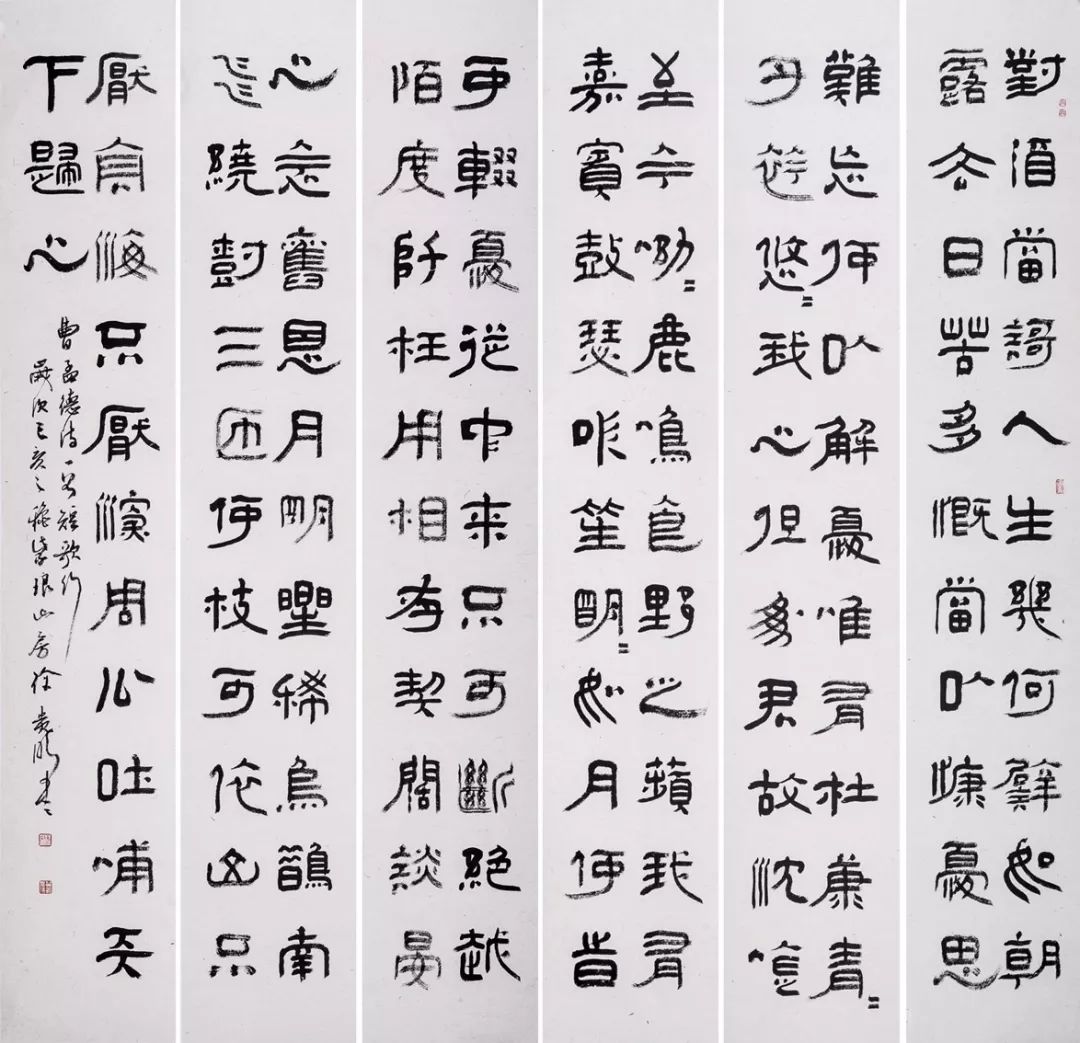 對酒當謌人生幾何譬如朝
露去日苦多慨當以慷憂思
難忘何以解憂唯有杜康青〻
子衿悠〻我心但爲君故沈吟
至今呦〻鹿鳴食野之蘋我有
嘉賓鼓瑟吹笙明〻如月何時
可輟憂從中來不可斷絕越
陌度阡枉用相存契闊談宴
心念舊恩月明星稀烏鵲南
飛繞樹三匝何枝可依山不
厭高海不厭深周公吐哺天
下歸心
曹孟德詩一首短歌行
歲次己亥之穐琅山房徐書